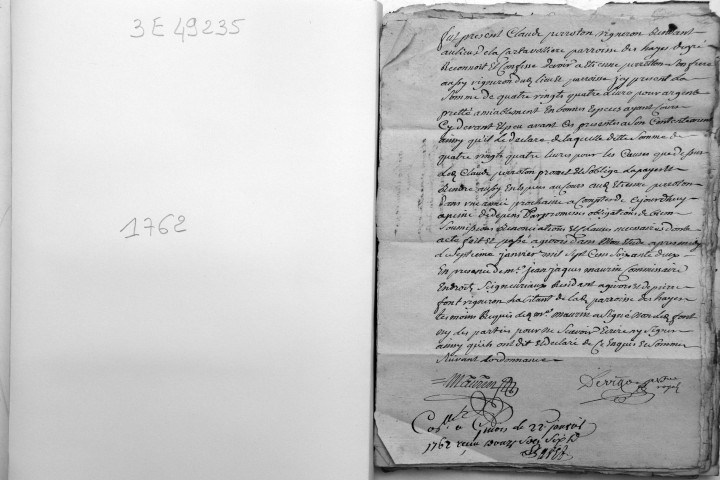 3 E 49235
1762
fut present Claude perroton vigneron Residant
au lieu de la sartavelliere parroisse des hayes de gré
Reconnoit Et Confesse devoir a Etienne perroton son frere
aussy vigneron dud. lieu et parroisse icy present La
Somme de quatre vingts quatre livres pour argent
pretté amiablement En bonnes Especes ayant Cours
Cy devant Et peu avant Ces presentes a Son Contentement
ainsy qu'il Le declare, de laquelle ditte Somme de
quatre vingts quatre livres pour les Causes que dessus
Led. Claude perroton promet Et S'oblige La payer Et
Rendre aussy En Especes au Cours aud. Etienne perroton
Dans une année prochaine a Compter de Cejourd'huy
a peine de depens par promesses obligations de biens
Soumissions Renonciations Et Clauses necessaires dont
acte fait Et passé a givors dans Mon Etude apres midy
Le Septieme janvier mil Sept Cens Soixante deux
En presence de mr. jean jaques maurin Commissaire
En droits Seigneuriaux Residant a givors Et de pierre
font vigneron habitant de lad. parroisse des hayes
temoins Requis Led. mr. maurin a Signé Non led. font
ny les parties pour ne Scavoir Ecrire ny Signer
ainsy qu'ils ont dit Et declaré de Ce Enquis Et Sommés
Suivant L'ordonnance
Maurin
Dervieo notaire
royal
Con.lé a Givors le 22 janvier
1762 reçu douze Sols Six d.